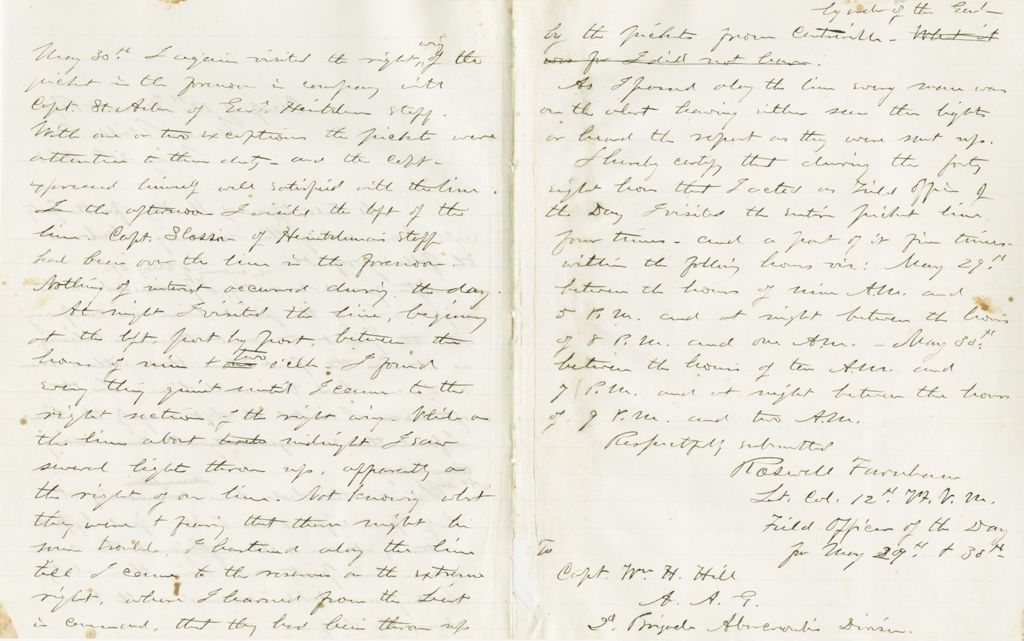 May 30th I again visited the right wing of the
picket in the forenoon in company with
Capt. St. Alban of Gen. Heintzlman staff.
With one or two exceptions the picket were
attentive to their duty - and the Capt.
expressed himself well satisfied with the line.
In the afternoon I visited the left of the
line. Capt. Slosson of Heintzleman's staff
had been over the line in the forenoon.
Nothing of interest occurred during the day.
At night I visited the line, beginning
at the left, post by post, between the
hours of nine & two o'clk. I found
every thing quiet until I came to the
right section of the right wing. While on
the line about midnight I saw
several lights thrown up, apparently on
the right of our line. Not knowing what
they were & fearing that there might be
some trouble, I hastened along the line
till I came to the reserves on the extreme
right, where I learned from the Lieut
in command, that they had been thrown up
by order of the Genl
by the pickets from Centreville - What it
was for I did not learn.
As I passed along the line every man was
on the alert having either seen the lights
or heard the report as they were sent up.
I hereby certify that during the forty
eight hours that I acted as Field Officer of
the Day I visited the entire picket line
four times - and a part of it five times.
within the following hours viz: May 29th
between the hours of nine A.M. and
5 P.M. and at night between the hours
of 8 P.M. and one A.M. - May 30th
between the hours of ten A.M. and
7 P.M. and at night between the hours
of 9 P.M. and two A.M.
Respectfully submitted
Roswell Farnham
Lt. Col. 12th Vt. V. M.
Field Officer of the Day
for May 29th & 30th
To
Capt. Wm H. Hill
A. A. G.
2d Brigade Abercrombie's Division.